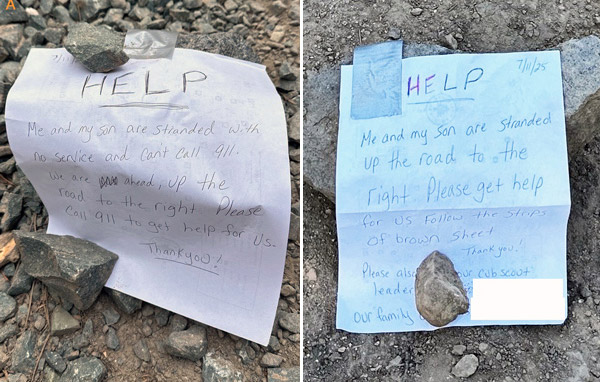 A
7/11
HELP
Me and my son are stranded with
no service and can't call 911.
We are ahead, up the
road to the right. Please
call 911 to get help for us.
Thankyou!
7/11/25
HELP
Me and my son are stranded
up the road to the
right. Please get help
for us Follow the strips
of brown sheet
Thankyou!
Please our cubscout
leader
our family